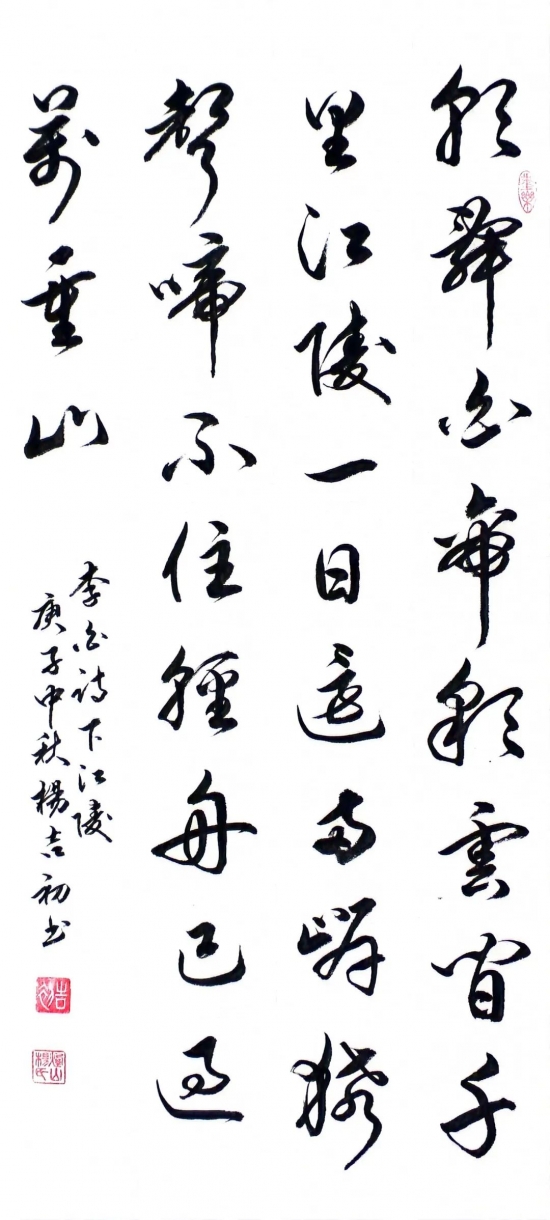 朝辭白帝彩雲間千
里江陵一日還兩岸猿
聲啼不住輕舟已過
萬重山
李白詩下江陵
庚子中秋楊吉初書
吉初